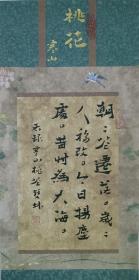 桃花
寒山
朝々花遷落。歲々
人移改。今日揚塵
處。昔時為大海。